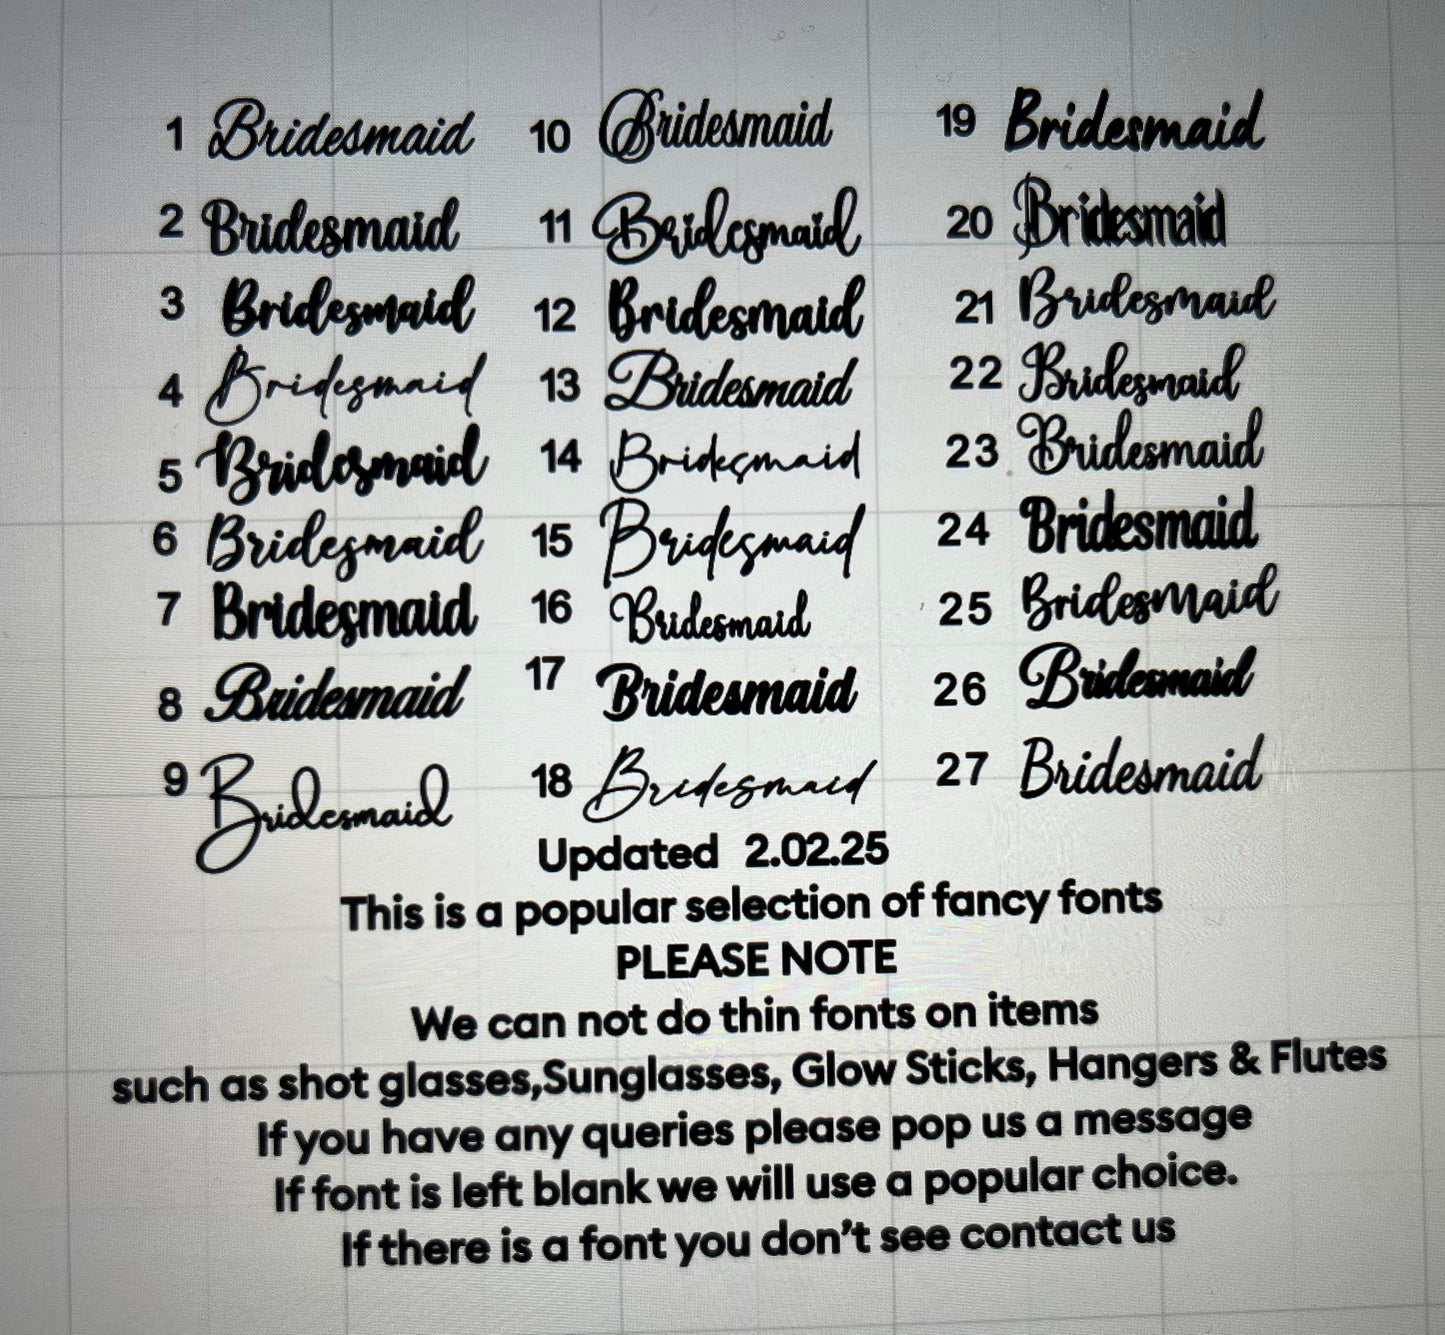 1 Bridesmaid 10 Bridesmaid 19 Bridesmaid
2 Bridesmaid 11 Bridesmaid 20 Bridesmaid
3 Bridesmaid 12 Bridesmaid 21 Bridesmaid
4 Bridesmaid 13 Bridesmaid 22 Bridesmaid
5 Bridesmaid 14 Bridesmaid 23 Bridesmaid
6 Bridesmaid 15 Bridesmaid 24 Bridesmaid
7 Bridesmaid 16 Bridesmaid 25 Bridesmaid
8 Bridesmaid 17 Bridesmaid 26 Bridesmaid
9 Bridesmaid 18 Bridesmaid 27 Bridesmaid
Updated 2.02.25
This is a popular selection of fancy fonts
PLEASE NOTE
We can not do thin fonts on items
such as shot glasses,Sunglasses, Glow Sticks, Hangers & Flutes
If you have any queries please pop us a message
If font is left blank we will use a popular choice.
If there is a font you don't see contact us